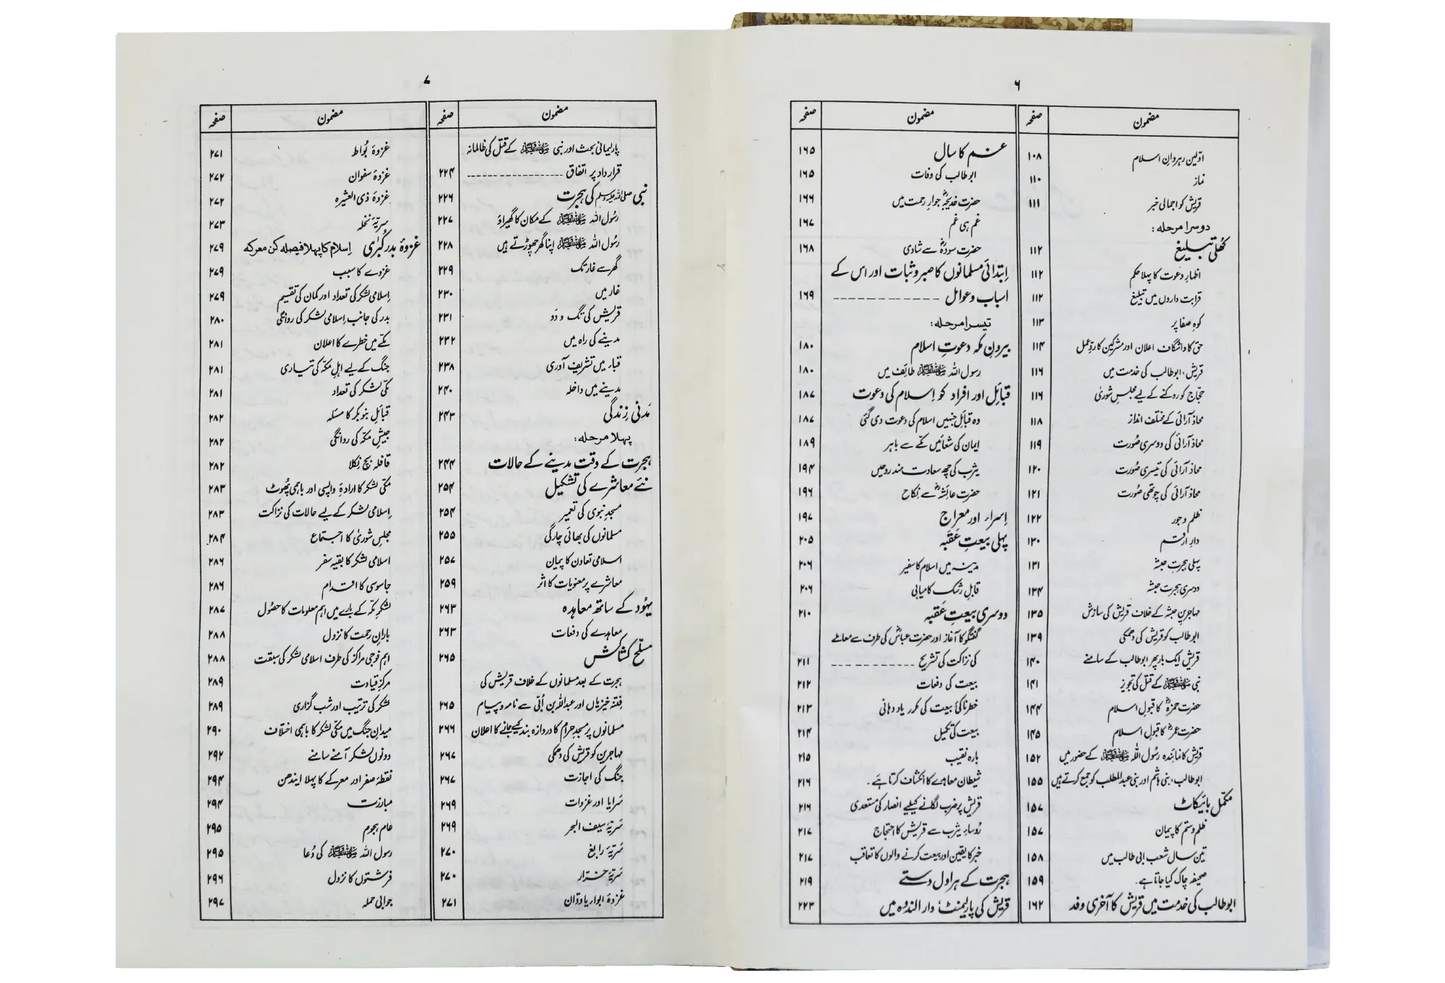 ۶
مضمون صفحہ
اوّلین رہروانِ اسلام ۱۰۸
نماز ۱۱۰
قریش کو اجمالی خبر ۱۱۱
دوسرا مرحلہ:
کھلی تبلیغ ۱۱۲
اظہارِ دعوت کا پہلا حکم ۱۱۲
قرابت داروں میں تبلیغ ۱۱۲
کوہِ صفا پر ۱۱۳
حق کا واشگاف اعلان اور مشرکین کا ردِّ عمل ۱۱۴
قریش، ابوطالب کی خدمت میں ۱۱۶
حجاج کو روکنے کے لیے مجلسِ شوریٰ ۱۱۶
محاذ آرائی کے مختلف انداز ۱۱۸
محاذ آرائی کی دوسری صورت ۱۱۹
محاذ آرائی کی تیسری صورت ۱۲۰
محاذ آرائی کی چوتھی صورت ۱۲۱
ظلم و جور ۱۲۲
دارِ ارقم ۱۳۰
پہلی ہجرتِ حبشہ ۱۳۱
دوسری ہجرتِ حبشہ ۱۳۴
مہاجرینِ حبشہ کے خلاف قریش کی سازش ۱۳۵
ابوطالب کو قریش کی دھمکی ۱۳۹
قریش ایک بار پھر ابوطالب کے سامنے ۱۴۰
نبی ﷺ کے قتل کی تجویز ۱۴۱
حضرت حمزہؓ کا قبولِ اسلام ۱۴۴
حضرت عمرؓ کا قبولِ اسلام ۱۴۵
قریش کا نمائندہ رسول اللہ ﷺ کے حضور میں ۱۵۲
ابوطالب، بنی ہاشم اور بنی عبدالمطلب کو جمع کرتے ہیں ۱۵۵
مکمل بائیکاٹ ۱۵۷
ظلم و ستم کا پیمان ۱۵۷
تین سال شعبِ ابی طالب میں ۱۵۸
صحیفہ چاک کیا جاتا ہے۔ ۱۵۹
ابوطالب کی خدمت میں قریش کا آخری وفد ۱۶۲
مضمون صفحہ
غم کا سال ۱۶۵
ابوطالب کی وفات ۱۶۵
حضرت خدیجہؓ جوارِ رحمت میں ۱۶۶
غم ہی غم ۱۶۷
حضرت سودہؓ سے شادی ۱۶۸
ابتدائی مسلمانوں کا صبر و ثبات اور اس کے
اسباب و عوامل ---------- ۱۶۹
تیسرا مرحلہ:
بیرونِ مکہ دعوتِ اسلام ۱۸۰
رسول اللہ ﷺ طائف میں ۱۸۰
قبائل اور افراد کو اِسلام کی دعوت ۱۸۷
وہ قبائل جنہیں اسلام کی دعوت دی گئی ۱۸۷
ایمان کی شعاعیں مکّے سے باہر ۱۸۹
یثرب کی چھ سعادت مند روحیں ۱۹۴
حضرت عائشہؓ سے نکاح ۱۹۶
اِسراء اور معراج ۱۹۷
پہلی بیعتِ عَقَبہ ۲۰۵
مدینہ میں اسلام کا سفیر ۲۰۶
قابلِ رشک کامیابی ۲۰۶
دوسری بیعتِ عَقبہ ۲۱۰
گفتگو کا آغاز اور حضرت عباسؓ کی طرف سے معاملے
کی نزاکت کی تشریح ---------- ۲۱۱
بیعت کی دفعات ۲۱۲
خطرناکیٔ بیعت کی مکرر یاد دہانی ۲۱۳
بیعت کی تکمیل ۲۱۴
بارہ نقیب ۲۱۵
شیطان معاہدے کا انکشاف کرتا ہے۔ ۲۱۶
قریش پر ضرب لگانے کیلئے انصار کی مستعدی ۲۱۶
رُوساءِ یثرب سے قریش کا احتجاج ۲۱۷
خبر کا یقین اور بیعت کرنے والوں کا تعاقب ۲۱۷
ہجرت کے ہراول دستے ۲۱۹
قریش کی پارلیمنٹ: دارالندوہ میں ۲۲۳
۷
مضمون صفحہ
پارلیمانی بحث اور نبی ﷺ کے قتل کی ظالمانہ
قرارداد پر اتفاق ---------- ۲۲۴
نبی ﷺ کی ہجرت ۲۲۶
رسُول اللہ ﷺ کے مکان کا گھیراؤ ۲۲۷
رسُول اللہ ﷺ اپنا گھر چھوڑتے ہیں ۲۲۸
گھر سے غار تک ۲۲۹
غار میں ۲۳۰
قریش کی تگ و دَو ۲۳۱
مدینے کی راہ میں ۲۳۲
قباء میں تشریف آوری ۲۳۸
مدینے میں داخلہ ۲۴۰
مَدنی زندگی ۲۴۳
پہلا مرحلہ:
ہجرت کے وقت مدینے کے حالات ۲۴۴
نئے معاشرے کی تشکیل ۲۵۴
مسجدِ نبوی کی تعمیر ۲۵۴
مسلمانوں کی بھائی چارگی ۲۵۵
اسلامی تعاون کا پیمان ۲۵۷
معاشرے پر معنویات کا اثر ۲۵۹
یہُود کے ساتھ معاہدہ ۲۶۳
معاہدے کی دفعات ۲۶۳
مسلّح کشاکش ۲۶۵
ہجرت کے بعد مسلمانوں کے خلاف قریش کی
فتنہ خیزیاں اور عبداللہ بن اُبَی سے نامہ و پیام ۲۶۵
مسلمانوں پر مسجدِ حرام کا دروازہ بند کیے جانے کا اعلان ۲۶۶
مہاجرین کو قریش کی دھمکی ۲۶۷
جنگ کی اجازت ۲۶۷
سَرَایا اور غزوات ۲۶۹
سَرِیّۂ سیف البحر ۲۶۹
سَرِیّۂ رابغ ۲۷۰
سَرِیّۂ خرّار ۲۷۰
غزوۂ ابواء یا ودّان ۲۷۱
مضمون صفحہ
غزوۂ بُواط ۲۷۱
غزوۂ سفوان ۲۷۲
غزوۂ ذی العشیرہ ۲۷۲
سَرِیّۂ نخلہ ۲۷۳
غزوۂ بدر کُبریٰ اِسلام کا پہلا فیصلہ کن معرکہ ۲۷۹
غزوے کا سبب ۲۷۹
اِسلامی لشکر کی تعداد اور کمان کی تقسیم ۲۷۹
بدر کی جانب اِسلامی لشکر کی روانگی ۲۸۰
مکّے میں خطرے کا اعلان ۲۸۱
جنگ کے لیے اہلِ مکّہ کی تیاری ۲۸۱
مکّی لشکر کی تعداد ۲۸۱
قبائلِ بنو بکر کا مسئلہ ۲۸۲
جیشِ مکّہ کی روانگی ۲۸۲
قافلہ بچ نکلا ۲۸۲
مکّی لشکر کا ارادۂ واپسی اور باہمی پھُوٹ ۲۸۳
اِسلامی لشکر کے لیے حالات کی نزاکت ۲۸۳
مجلسِ شوریٰ کا اجتماع ۲۸۴
اسلامی لشکر کا بقیہ سفر ۲۸۶
جاسوسی کا اقدام ۲۸۶
لشکرِ مکّہ کے بارے میں اہم معلومات کا حصُول ۲۸۷
بارانِ رحمت کا نزول ۲۸۸
اہم فوجی مراکز کی طرف اسلامی لشکر کی سبقت ۲۸۸
مرکزِ قیادت ۲۸۹
لشکر کی ترتیب اور شب گزاری ۲۸۹
میدانِ جنگ میں مکّی لشکر کا باہمی اختلاف ۲۹۰
دونوں لشکر آمنے سامنے ۲۹۲
نقطۂ صفر اور معرکے کا پہلا ایندھن ۲۹۴
مبارزت ۲۹۴
عام ہجوم ۲۹۵
رسول اللہ ﷺ کی دُعا ۲۹۵
فرشتوں کا نزول ۲۹۶
جوابی حملہ ۲۹۷